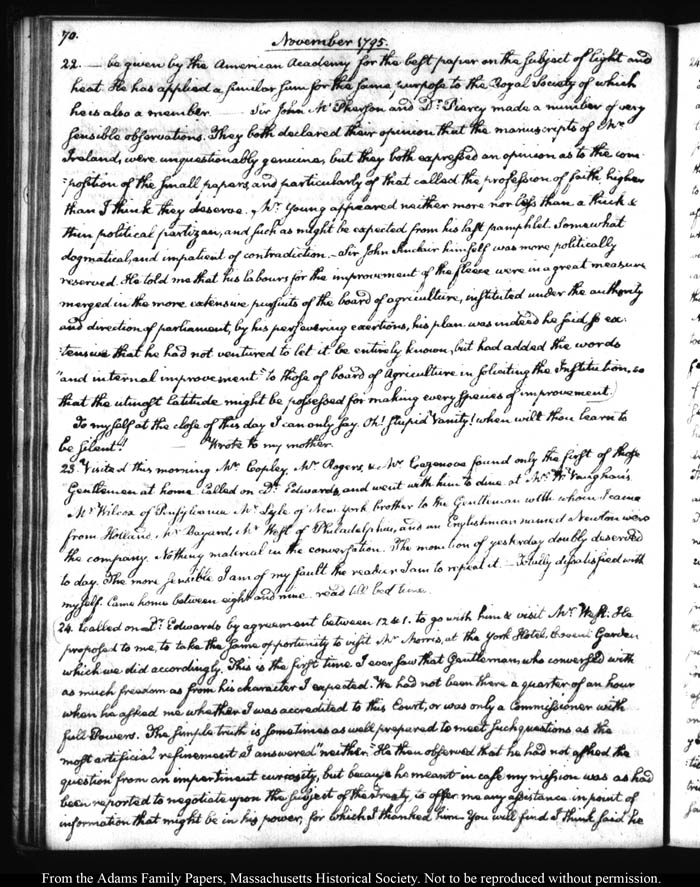 70.
November 1795.
22. — be given by the American Academy for the best paper on the subject of light and
heat. He has applied a similar sum for the same purpose to the Royal Society of which
he is also a member. — Sir John McPherson and Dr. Piercy made a number of very
sensible observations. They both declared their opinion that the manuscripts of Mr.
Ireland, were unquestionably genuine, but they both expressed an opinion as to the com-
:position of the small papers, and particularly of that called the profession of faith, higher
than I think they deserve. Mr. Young appeared neither more nor less than a thick &
thin political partizan, and such as might be expected from his last pamphlet. Somewhat
dogmatical, and impatient of contradiction. — Sir John Sinclair himself was more politically
reserved. He told me that his labours for the improvement of the fleece were in a great measure
merged in the more extensive pursuits of the board of agriculture, instituted under the authority
and direction of parliament, by his persevering exertions, his plan was indeed he said so ex-
:tensive that he had not ventured to let it be entirely known, but had added the words
"and internal improvement" to those of board of Agriculture in soliciting the Institution, so
that the utmost latitude might be possessed for making every species of improvement.)
To myself at the close of this day I can only say. Oh! stupid Vanity! when wilt thou learn to
be silent! — Wrote to my mother.
23. Visited this morning Mr. Copley, Mr. Rogers, & Mr. Cazenove found only the first of those
Gentlemen at home. Called on Dr. Edwards, and went with him to dine at Mr. Wm. Vaughan's
Mr. Wilcox of Pensylvania Mr. Lyle of New York brother to the Gentleman with whom I came
from Holland, Mr. Bayard, Mr. West of Philadelphia, and an Englishman named Newton were
the company. Nothing material in the conversation. The monition of yesterday doubly deserved
to day. The more sensible I am of my fault the readier I am to repeat it. — Totally dissatisfied with
myself. Came home between eight and nine. read till bed time.
24. Called on Dr. Edwards by agreement between 12 & 1. to go with him & visit Mr. West. He
proposed to me, to take the same opportunity to visit Mr. Morris, at the York Hotel Covent Garden
which we did accordingly. This is the first time I ever saw that Gentleman, who conversed with
as much freedom as from his character I expected. We had not been there a quarter of an hour
when he asked me whether I was accredited to this Court, or was only a Commissioner with
full Powers. The simple truth is sometimes as well prepared to meet such questions as the
most artificial refinement I answered "neither." He then observed that he had not asked the
question from an impertinent curiosity, but because he meant in case my mission was as had
been reported to negotiate upon the subject of the treaty, to offer me any assistance in point of
information that might be in his power, for which I thanked him. You will find I think said he
From the Adams Family Papers, Massachusetts Historical Society. Not to be reproduced without permission.